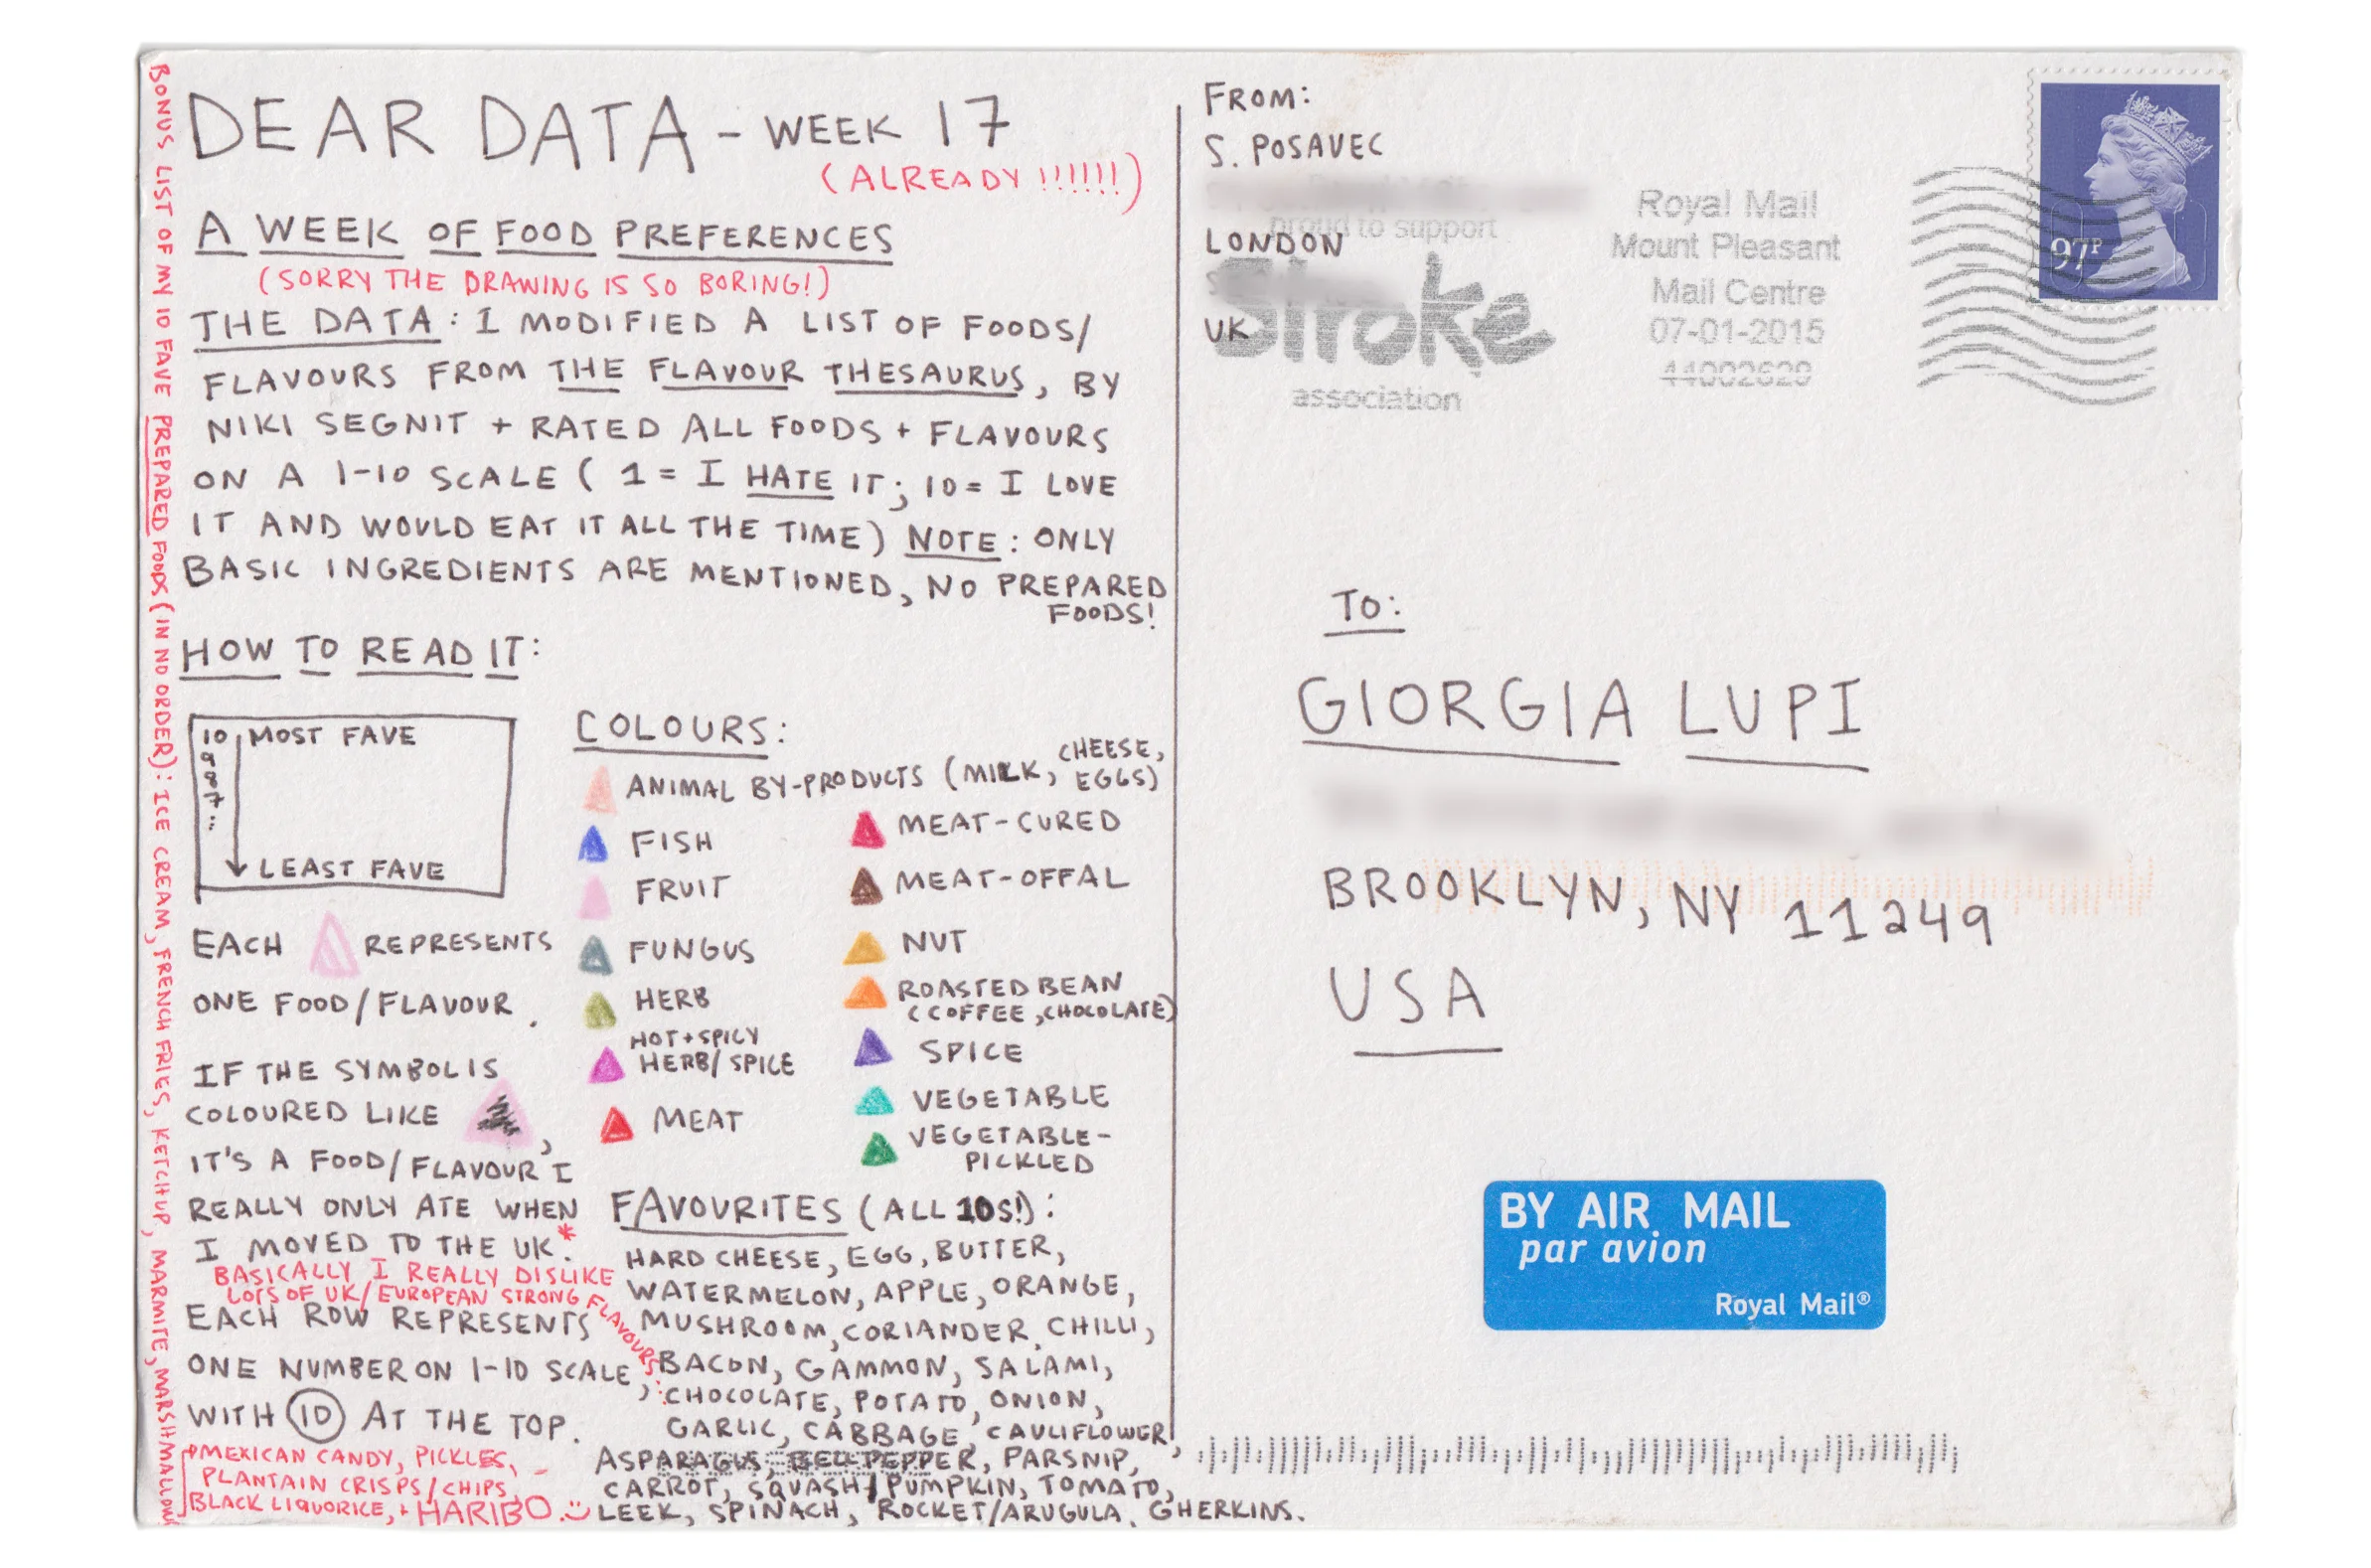 DEAR DATA - WEEK 17
(ALREADY!!!!!!)
A WEEK OF FOOD PREFERENCES
(SORRY THE DRAWING IS SO BORING!)
THE DATA: I MODIFIED A LIST OF FOODS/
FLAVOURS FROM THE FLAVOUR THESAURUS, BY
NIKI SEGNIT + RATED ALL FOODS + FLAVOURS
ON A 1-10 SCALE ( 1 = I HATE IT; 10 = I LOVE
IT AND WOULD EAT IT ALL THE TIME) NOTE: ONLY
BASIC INGREDIENTS ARE MENTIONED, NO PREPARED
FOODS!
HOW TO READ IT:
10 MOST FAVE
9
8
7
...
LEAST FAVE
EACH REPRESENTS
ONE FOOD/FLAVOUR.
IF THE SYMBOL IS
COLOURED LIKE ,
IT'S A FOOD/FLAVOUR I
REALLY ONLY ATE WHEN
I MOVED TO THE UK.*
BASICALLY I REALLY DISLIKE
LOTS OF UK/EUROPEAN STRONG FLAVOURS
EACH ROW REPRESENTS
ONE NUMBER ON 1-10 SCALE,
WITH 10 AT THE TOP.
COLOURS:
ANIMAL BY-PRODUCTS (MILK, CHEESE,
EGGS)
FISH
FRUIT
FUNGUS
HERB
HOT + SPICY
HERB/SPICE
MEAT
MEAT-CURED
MEAT-OFFAL
NUT
ROASTED BEAN
(COFFEE, CHOCOLATE)
SPICE
VEGETABLE
VEGETABLE-
PICKLED
FAVOURITES (ALL 10S!):
HARD CHEESE, EGG, BUTTER,
WATERMELON, APPLE, ORANGE,
MUSHROOM, CORIANDER, CHILLI,
BACON, GAMMON, SALAMI,
CHOCOLATE, POTATO, ONION,
GARLIC, CABBAGE, CAULIFLOWER,
ASPARAGUS, BELL PEPPER, PARSNIP,
CARROT, SQUASH/PUMPKIN, TOMATO,
LEEK, SPINACH, ROCKET/ARUGULA, GHERKINS.
BONUS LIST OF MY 10 FAVE PREPARED FOODS (IN NO ORDER): ICE CREAM, FRENCH FRIES, KETCHUP, MARMITE, MARSHMALLOW
MEXICAN CANDY, PICKLES,
PLANTAIN CRISPS/CHIPS,
BLACK LIQUORICE, + HARIBO.
FROM:
S. POSAVEC
LONDON
UK
proud to support
Stroke
association
Royal Mail
Mount Pleasant
Mail Centre
07-01-2015
44002629
97P
TO:
GIORGIA LUPI
BROOKLYN, NY 11249
USA
BY AIR MAIL
par avion
Royal Mail®